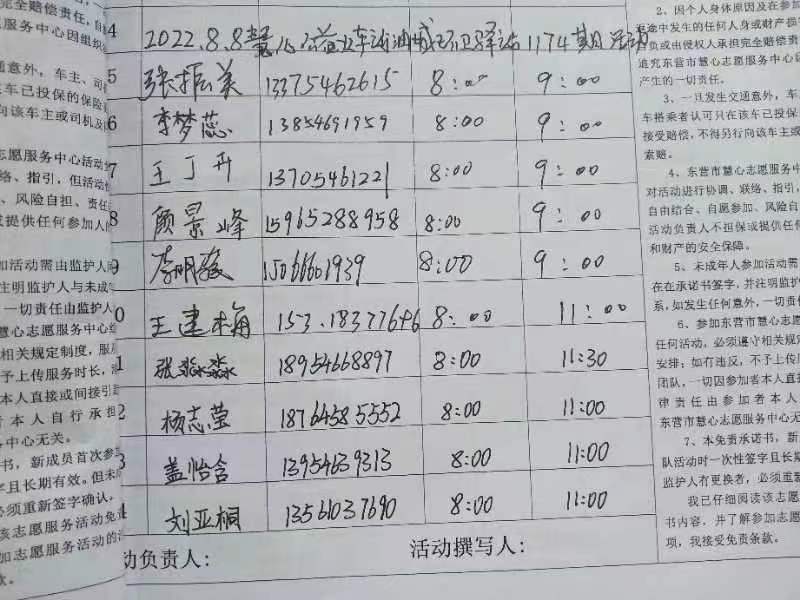 完全赔偿责任,自
服务中心因组织
通意外,车主、司
在车已投保的保险
向该车主或司机及
志愿服务中心活动
络、指引,但活动
、风险自担、责任
或提供任何参加人
加活动需由监护人
注明监护人与未成
一切责任由监护人
慧心志愿服务中心
相关规定制度,服
予上传服务时长,
本人直接或间接引
者本人自行承担
务中心无关。
书,新成员首次参
字且长期有效。但未
必须重新签字确认,
该志愿服务活动免
加志愿服务活动的
款。
4 2022.8.8慧心公益业车油城环卫驿站1174期活动
5 张振美 13375462615 8:00 9:00
6 李梦蕊 13854691959 8:00 9:00
7 王丁丹 13705461221 8:00 9:00
8 顾景峰 15965288958 8:00 9:00
9 李明 15066601939 8:00 9:00
0 王建梅 153.18377646 8:00 11:00
1 张淼淼 18954668897 8:00 11:30
2 杨志莹 18764585552 8:00 11:00
3 盖怡含 13954639313 8:00 11:00
4 刘亚桐 13561037690 8:00 11:00
动负责人: 活动撰写人:
2、因个人身体原因及在参加
途中发生的任何人身或财产损
负或由侵权人承担完全赔偿责
追究东营市慧心志愿服务中心
产生的一切责任。
3、一旦发生交通意外,车
车搭乘者认可只在该车已投保
接受赔偿,不得另行向该车主或
索赔。
4、东营市慧心志愿服务中心
对活动进行协调、联络、指引,
自由结合、自愿参加、风险自
活动负责人不担保或提供任何
和财产的安全保障。
5、未成年人参加活动需
在在承诺书签字,并注明监护
系,如发生任何意外,一切责任
6、参加东营市慧心志愿
任何活动,必须遵守相关规定
安排;如有违反,不予上传服
团队,一切因参加者本人直
律责任由参加者本人
东营市慧心志愿服务中心无
7、本免责承诺书,新
队活动时一次性签字且长期
监护人有更换者,必须重新
我已仔细阅读该志愿
书内容,并了解参加志愿
项,我接受免责条款。